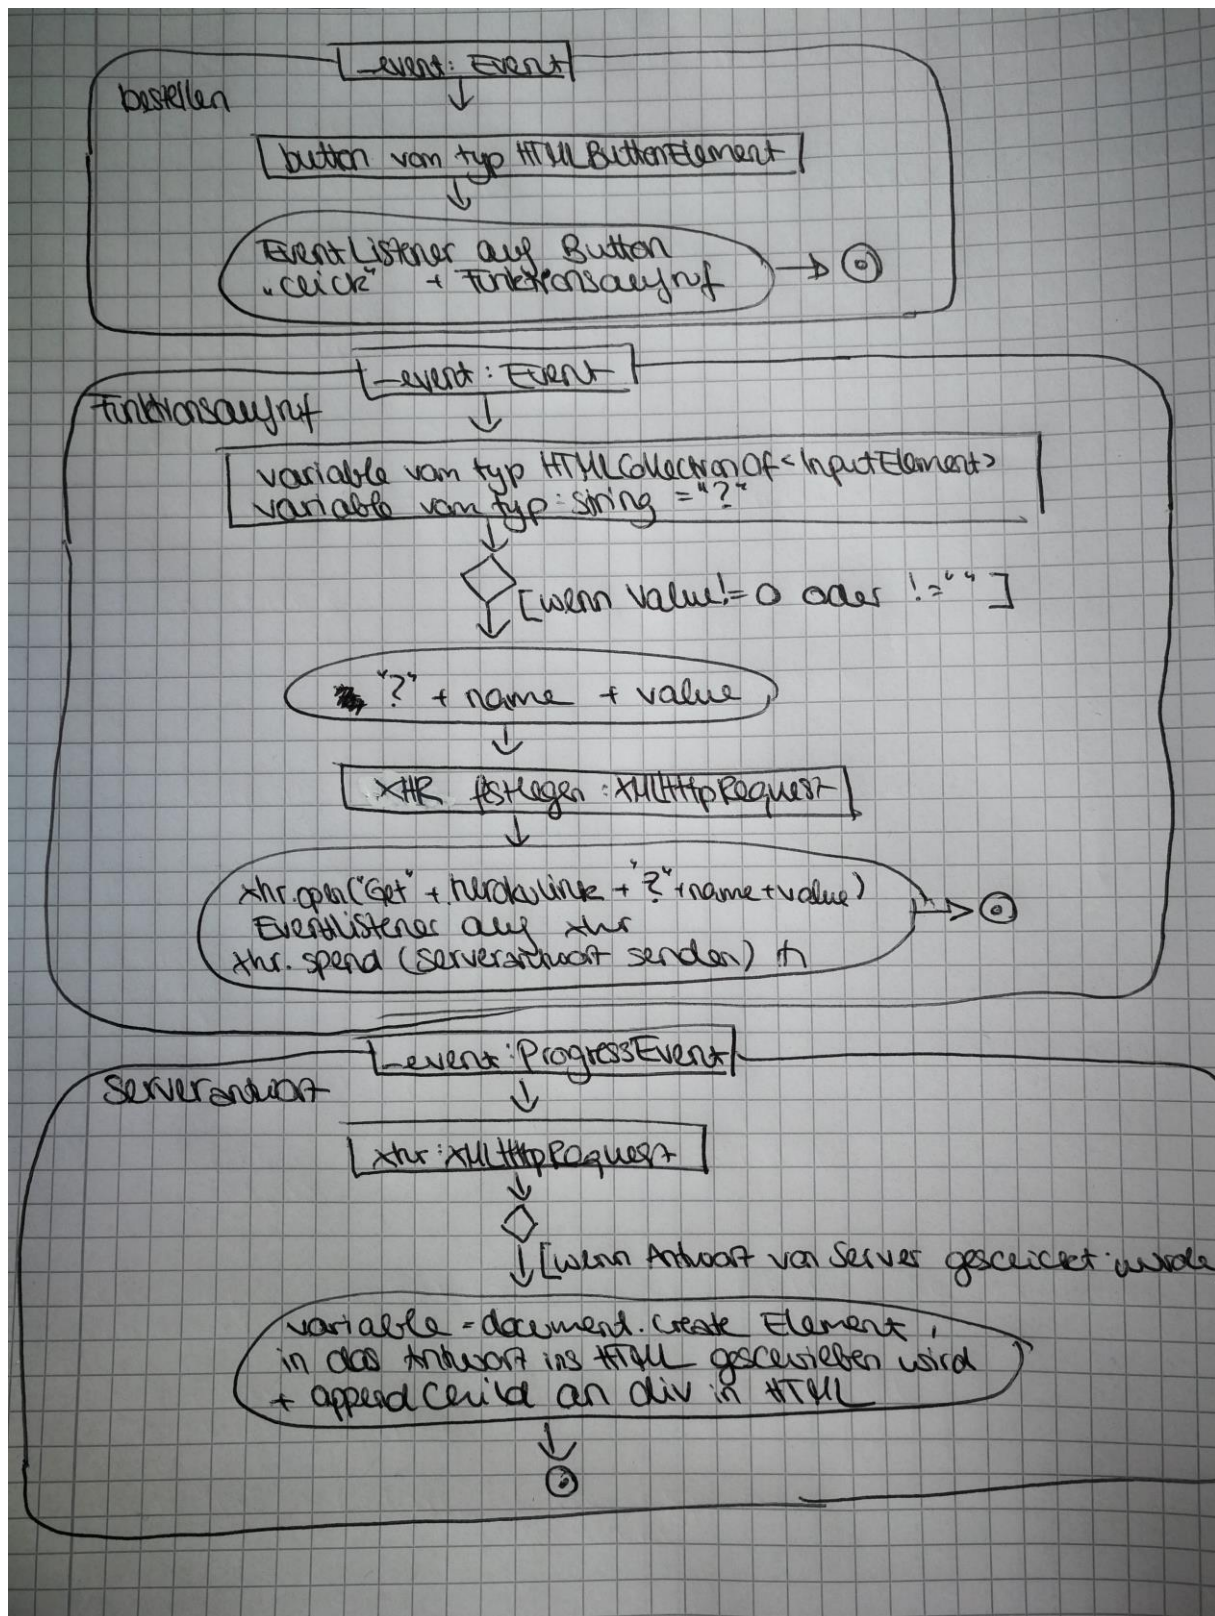 _event: Event
bestellen
button vom typ HTMLButtonElement
EventListener auf Button
"click" + Funktionsaufruf
_event: Event
Funktionsaufruf
variable vom typ HTMLCollectionOf<InputElement>
variable vom typ: string = "?"
[wenn value != 0 oder != ""]
"?" + name + value
XHR festlegen: XMLHttpRequest
xhr.open("Get" + herokulink + "?" + name + value)
EventListener auf xhr
xhr.spend (serverantwort senden)
_event: ProgressEvent
Serverantwort
xhr: XMLHttpRequest
[wenn Antwort von Server geschickt wurde
variable = document.create Element,
in das Antwort ins HTML geschrieben wird
+ appendChild an div in HTML